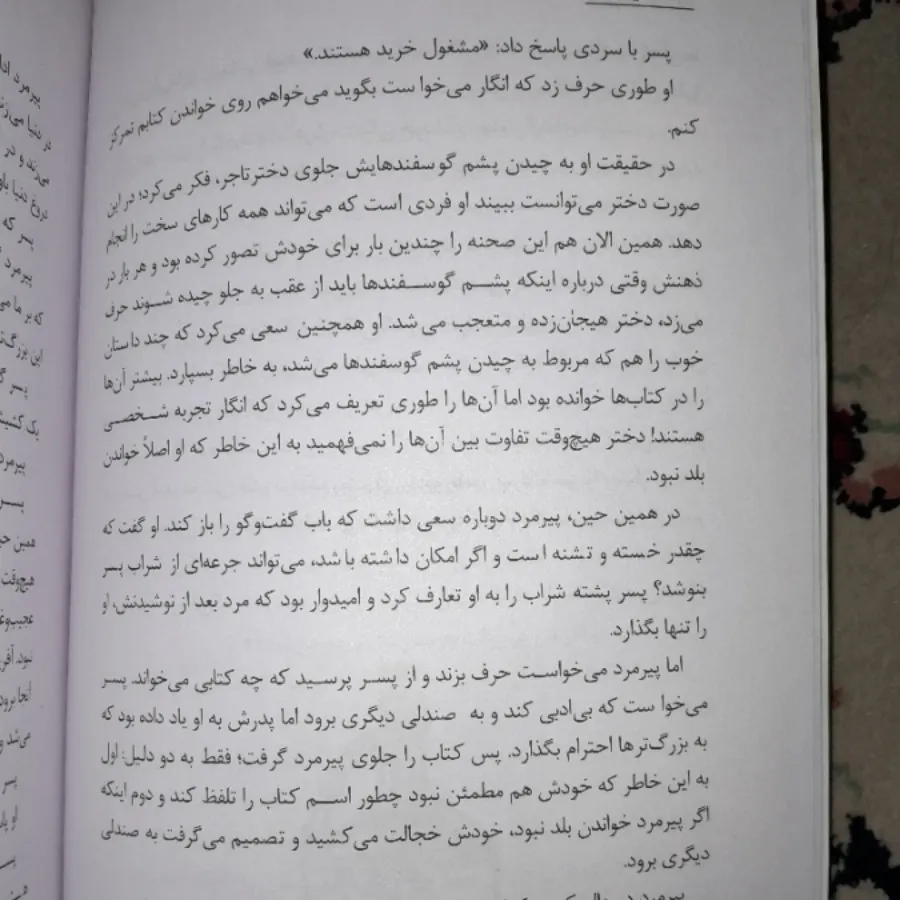 پسر با سردی پاسخ داد: «مشغول خرید هستند.»
او طوری حرف زد که انگار می‌خواست بگوید می‌خواهم روی خواندن کتابم تمرکز
کنم.
در حقیقت او به چیدن پشم گوسفندهایش جلوی دخترتاجر، فکر می‌کرد؛ در این
صورت دختر می‌توانست ببیند او فردی است که می‌تواند همه کارهای سخت را انجام
دهد. همین الان هم این صحنه را چندین بار برای خودش تصور کرده بود و هر بار در
ذهنش وقتی درباره اینکه پشم گوسفندها باید از عقب به جلو چیده شوند حرف
می‌زد، دختر هیجان‌زده و متعجب می‌شد. او همچنین سعی می‌کرد که چند داستان
خوب را هم که مربوط به چیدن پشم گوسفندها می‌شد، به خاطر بسپارد. بیشتر آن‌ها
را در کتاب‌ها خوانده بود اما آن‌ها را طوری تعریف می‌کرد که انگار تجربه شخصی
هستند! دختر هیچ‌وقت تفاوت بین آن‌ها را نمی‌فهمید به این خاطر که او اصلاً خواندن
بلد نبود.
در همین حین، پیرمرد دوباره سعی داشت که باب گفت‌وگو را باز کند. او گفت که
چقدر خسته و تشنه است و اگر امکان داشته باشد، می‌تواند جرعه‌ای از شراب پسر
بنوشد؟ پسر پشته شراب را به او تعارف کرد و امیدوار بود که مرد بعد از نوشیدنش، او
را تنها بگذارد.
اما پیرمرد می‌خواست حرف بزند و از پسر پرسید که چه کتابی می‌خواند. پسر
می‌خواست که بی‌ادبی کند و به صندلی دیگری برود اما پدرش به او یاد داده بود که
به بزرگ‌ترها احترام بگذارد. پس کتاب را جلوی پیرمرد گرفت؛ فقط به دو دلیل: اول
به این خاطر که خودش هم مطمئن نبود چطور اسم کتاب را تلفظ کند و دوم اینکه
اگر پیرمرد خواندن بلد نبود، خودش خجالت می‌کشید و تصمیم می‌گرفت به صندلی
دیگری برود.